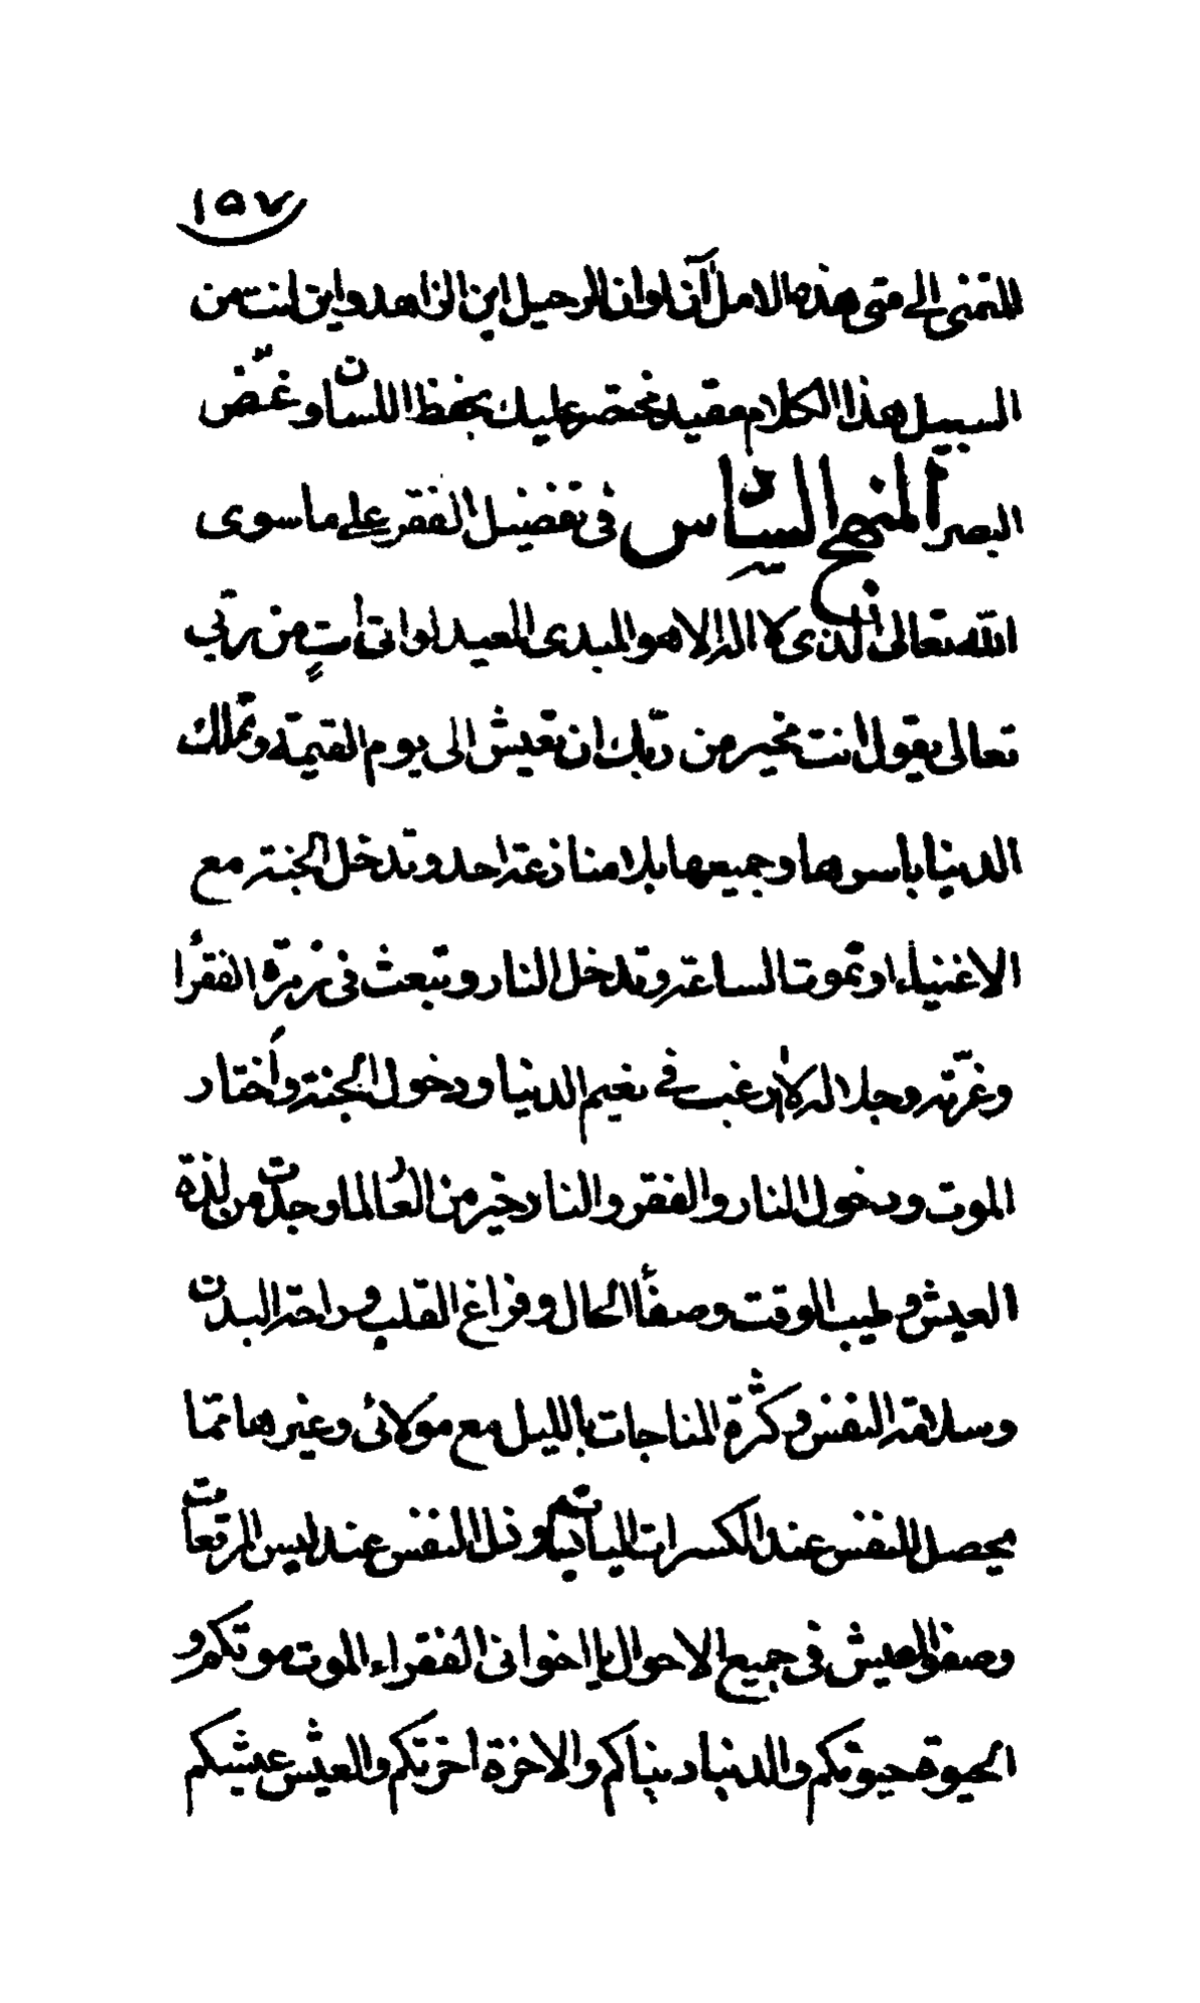 ١٥٧
للتمنى الى متى هذه الامل آن اوان الرحيل اين الزاهد واين انت من
السبيل هذا الكلام مختصر عليك بحفظ اللسان وغضّ
البصر المنهج السادس فى تفضيل الفقر على ما سوى
الله تعالى الذى لا اله الا هو المبدى المعيد لو اتى اتٍ من ربّى
تعالى يقول انت مخير من ربّك ان تعيش الى يوم القيمة وتملك
الدنيا باسرها وجميعها بلا منازعة احد وتدخل الجنة مع
الاغنياء او تموت الساعة وتدخل النار وتبعث فى زمرة الفقرأ
وعزّته وجلاله لا أرغب في نعيم الدنيا ودخول الجنة وأختار
الموت ودخول النار والفقر والنار خير من العار لما وجدت من لذة
العيش وطيب الوقت وصفأ الحال وفراغ القلب وراحة البدن
وسلامة النفس وكثرة المناجات بالليل مع مولائى وغيرها ممّا
يحصل للنفس عند الكسرات وذل النفس عند لبس المرقعات
وصفو العيش فى جميع الاحوال يا اخوانى الفقراء الموت موتكم و
الحيوة حيوتكم والدنيا دنياكم والاخرة اخرتكم والعيش عيشكم